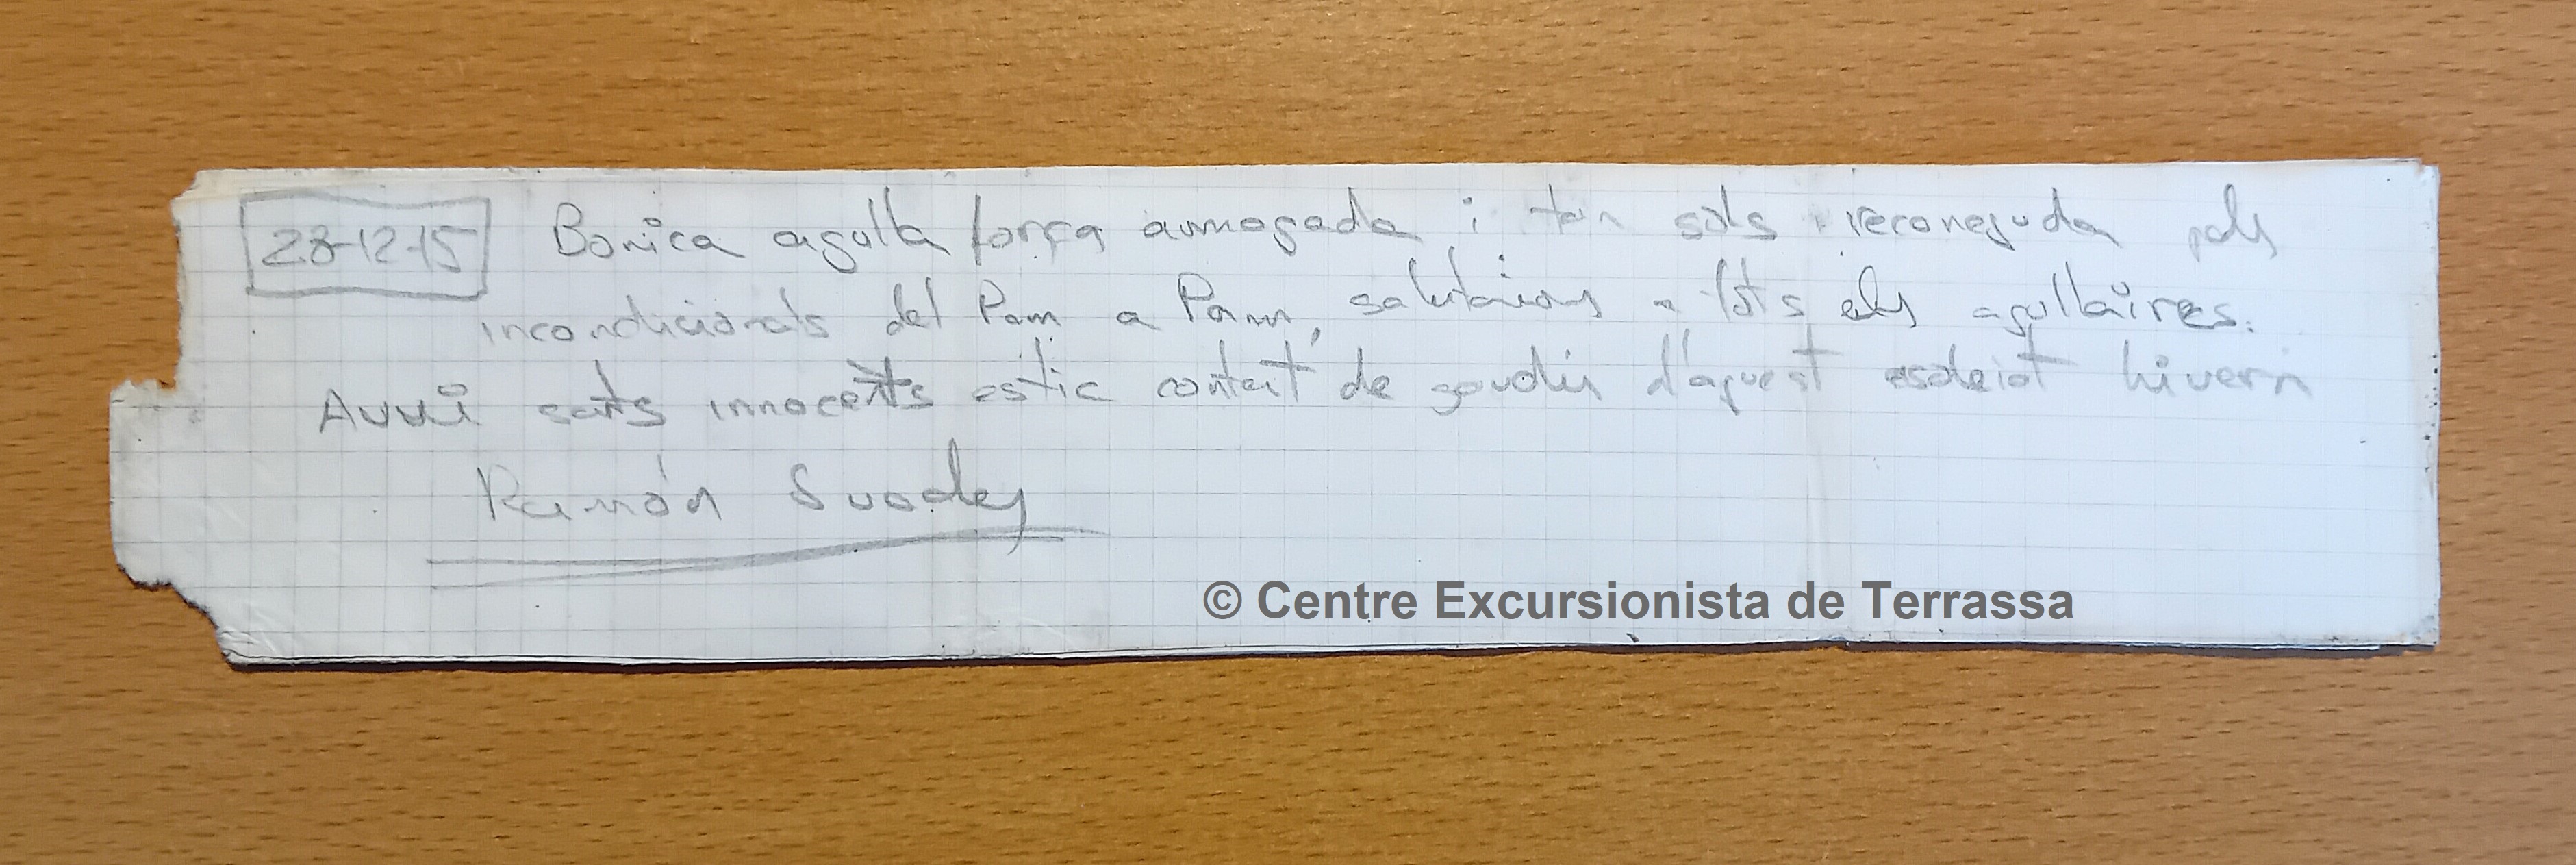 28-12-15 Bonica agulla força amagada i tan sols reconeguda pels
incondicionals del Pam a Pam, salutacions a tots els agullaires.
Avui sants innocents estic content de gaudir d'aquest assoleiat hivern
Ramón
© Centre Excursionista de Terrassa